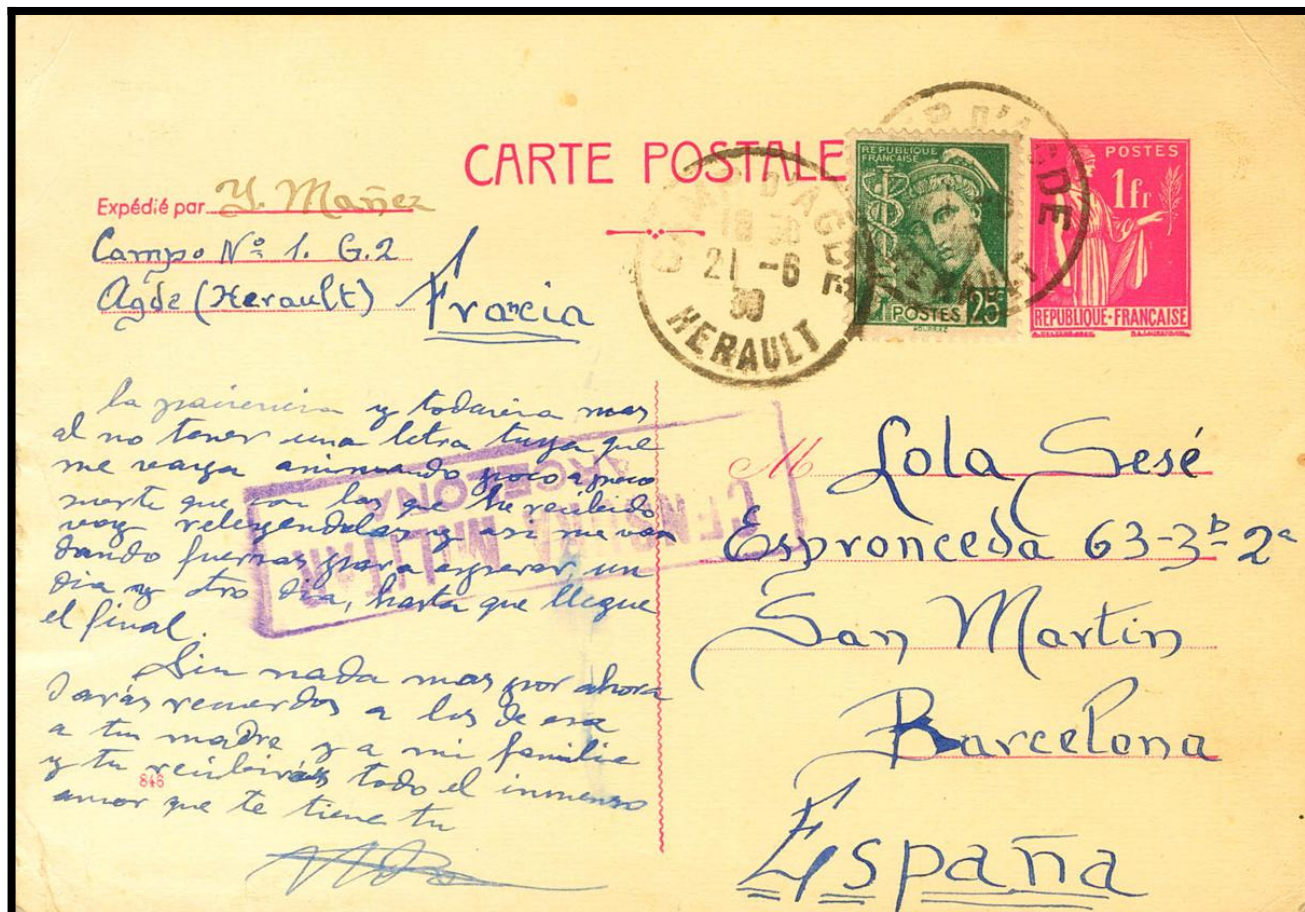 CARTE POSTALE
Expédié par Y. Mañez
Campo Nº 1. G.2
Agde (Herault) Francia
CAMP D'AGDE
21 -6
HERAULT
REPUBLIQUE
FRANÇAISE
POSTES 25
D'AGDE
POSTES
1 fr
REPUBLIQUE·FRANÇAISE
la paciencia y todavia mas
al no tener una letra tuya que
me vaya animando poco a poco
que con las que he recibido
voy releyendolas y asi me van
dando fuerzas para esperar, un
dia y otro dia, hasta que llegue
el final.
Sin nada mas por ahora
Darás recuerdos a los de esa
a tu madre y a mi familia
y tu recibirás todo el inmenso
amor que te tiene tu
846
CENSURA MILITAR
BARCELONA
M Lola Sesé
Espronceda 63-3º-2ª
San Martin
Barcelona
España